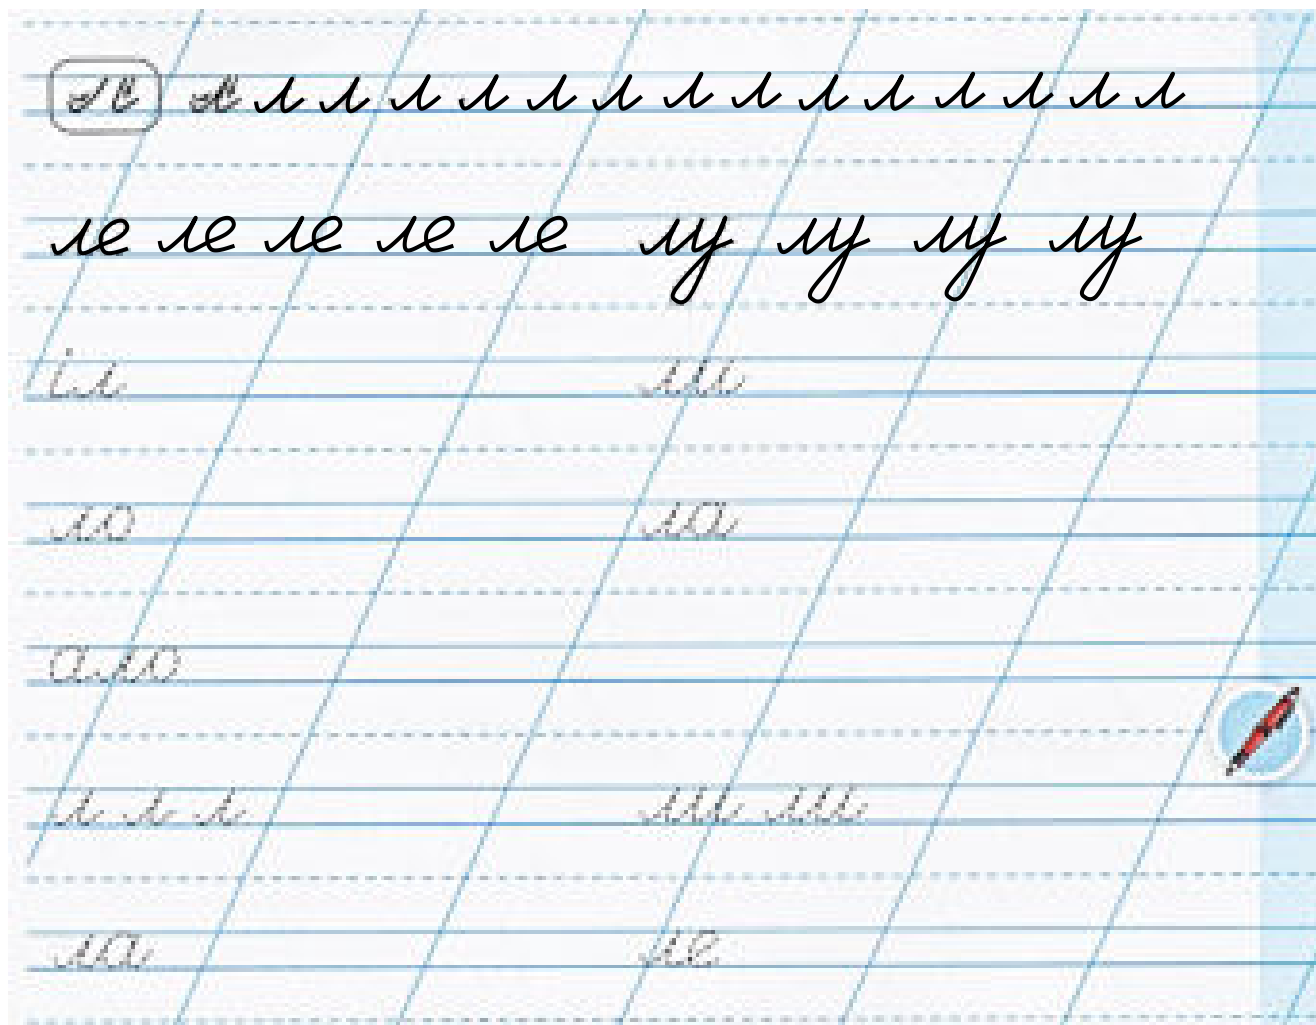 л л л л л л л л л л л л л л
ле ле ле ле ле лу лу лу лу
іл ли
ло ла
ало
л л л ли ли
ла ле